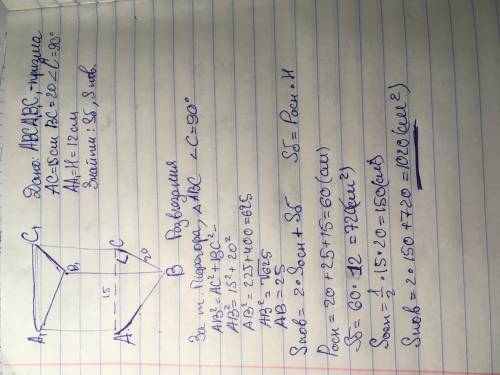 Дано: ABCA₁B₁C₁-призма
AC=15см BC=20 ∠C=90°
AA₁=H=12см
Знайти: Sб, Sпов.
A₁ C₁
B₁
A 15 C
20
B
Розвязання
За т. Піфагора, △ABC ∠C=90°
AB²=AC²+BC²
AB²=15²+20²
AB²=225+400=625
AB²=√625
AB=25
Sпов=2·Sосн+Sб Sб=Pосн·H
Pосн=20+25+15=60(см)
Sб=60·12=720(см²)
Sосн=1/2·15·20=150(см²)
Sпов=2·150+720=1020(см²)